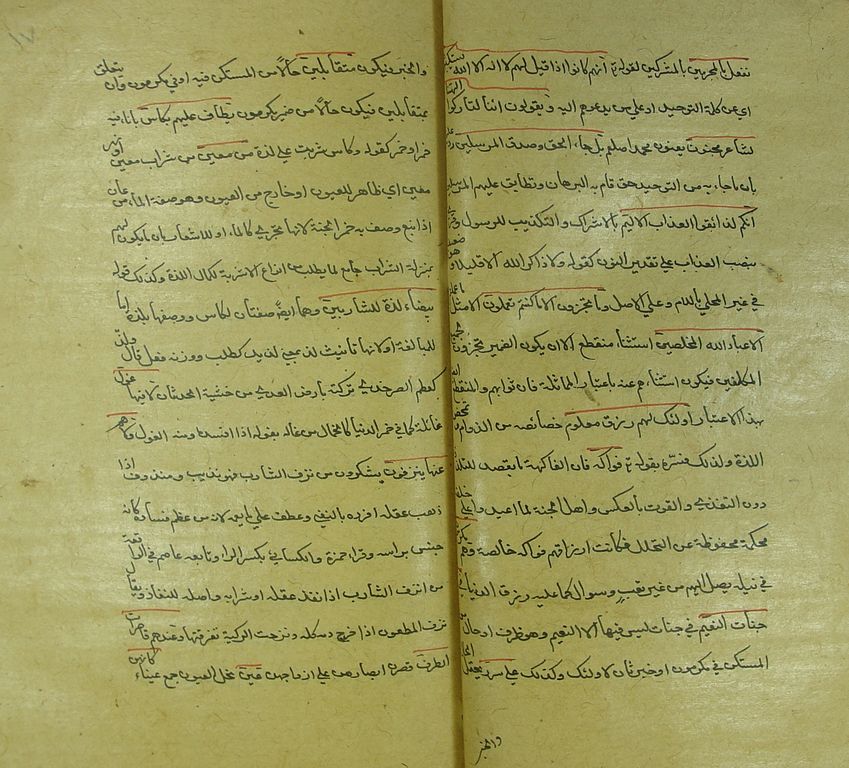 نفعل بالمجرمين بالمشركين لقوله تع انهم كانوا اذا قيل لهم لا اله الا الله يستكبرون
اي عن كلمة التوحيد او على من يدعوهم اليه ويقولون ائنا لتاركوا الهتنا
لشاعر مجنون يعنون محمدا صلعم بل جاء بالحق وصدق المرسلين رد عليهم
بان ما جاء به من التوحيد حق قام به البرهان وتطابق عليهم المرسلين
انكم لذائقوا العذاب الاليم بالاشراك والتكذيب للرسول وقرئ
بنصب العذاب على تقدير النون كقوله ولا ذاكر الله الا قليلا وهو ضعيف
في غير المحلى باللام وعلى الاصل وما تجزون الا ما كنتم تعملون الا مثل ما عملتم
الا عباد الله المخلصين استثناء منقطع الا ان يكون الضمير في تجزون لجميع
المكلفين فيكون استثناءهم عنه باعتبار المماثلة فان ثوابهم والمنقطع
بهذا الاعتبار اولئك لهم رزق معلوم خصائصه من الدوام وتمحض
اللذة ولذلك فسره بقوله تع فواكه فان الفاكهة ما يقصد للتلذذ
دون التغذي والقوت بالعكس واهل الجنة لما اعيدوا على خلقة
محكمة محفوظة عن التحلل فكانت ارزاقهم فواكه خالصة وهم مكرمون
في نيله يصل اليهم من غير تعب وسوال كما عليه رزق الدنيا في
جنات النعيم في جنات ليس فيها الا النعيم وهو ظرف او حال من
المستكن في مكرمون او خبر ثان لاولئك وكذلك على سرر يحتمل الحال
والخبر
والخبر فيكون متقابلين حالا من المستكن فيه او في مكرمون وان يتعلق
بمتقابلين فيكون حالا من ضمير مكرمون يطاف عليهم بكاس باناء فيه
خمر او خمر كقوله وكاس شربت على لذة من معين من شراب معين او نهر
معين اي ظاهر للعيون او خارج من العيون وهو صفة الماء من عان
اذا نبع وصف به خمر الجنة لانها تجري كالماء او للاشعار بان ما يكون لهم
بمنزلة الشراب جامع لما يطلب من انواع الاشربة لكمال اللذة وكذلك قوله
بيضاء لذة للشاربين وهما ايضا صفتان لكاس ووصفها بلذة اما
للمبالغة او لانها تانيث لذ بمعنى لذيذ كطب ووزنه فعل قال ولذ
كطعم الصرخدي تركته بارض العدى من خشية الحدثان لا فيها غول
غائلة كما في خمر الدنيا كالخمار من غاله يغوله اذا افسده ومنه الغول ولا هم
عنها ينزفون يسكرون من نزف الشارب فهو نزيف ومنزوف اذا
ذهب عقله افرده بالنفي وعطف على ما يعمه لانه من عظم فساده كانه
جنس براسه وقرا حمزة والكسائي بكسر الزاء وتابعه عاصم في الواقعة
من انزف الشارب اذا نفد عقله او شرابه واصله للنفاد يقال
نزف المطعون اذا خرج دمه كله ونزحت الركية حتى نزفتها وعندهم قاصرات
الطرف قصرن ابصارهن على ازواجهن عين نجل العيون جمع عيناء كانهن